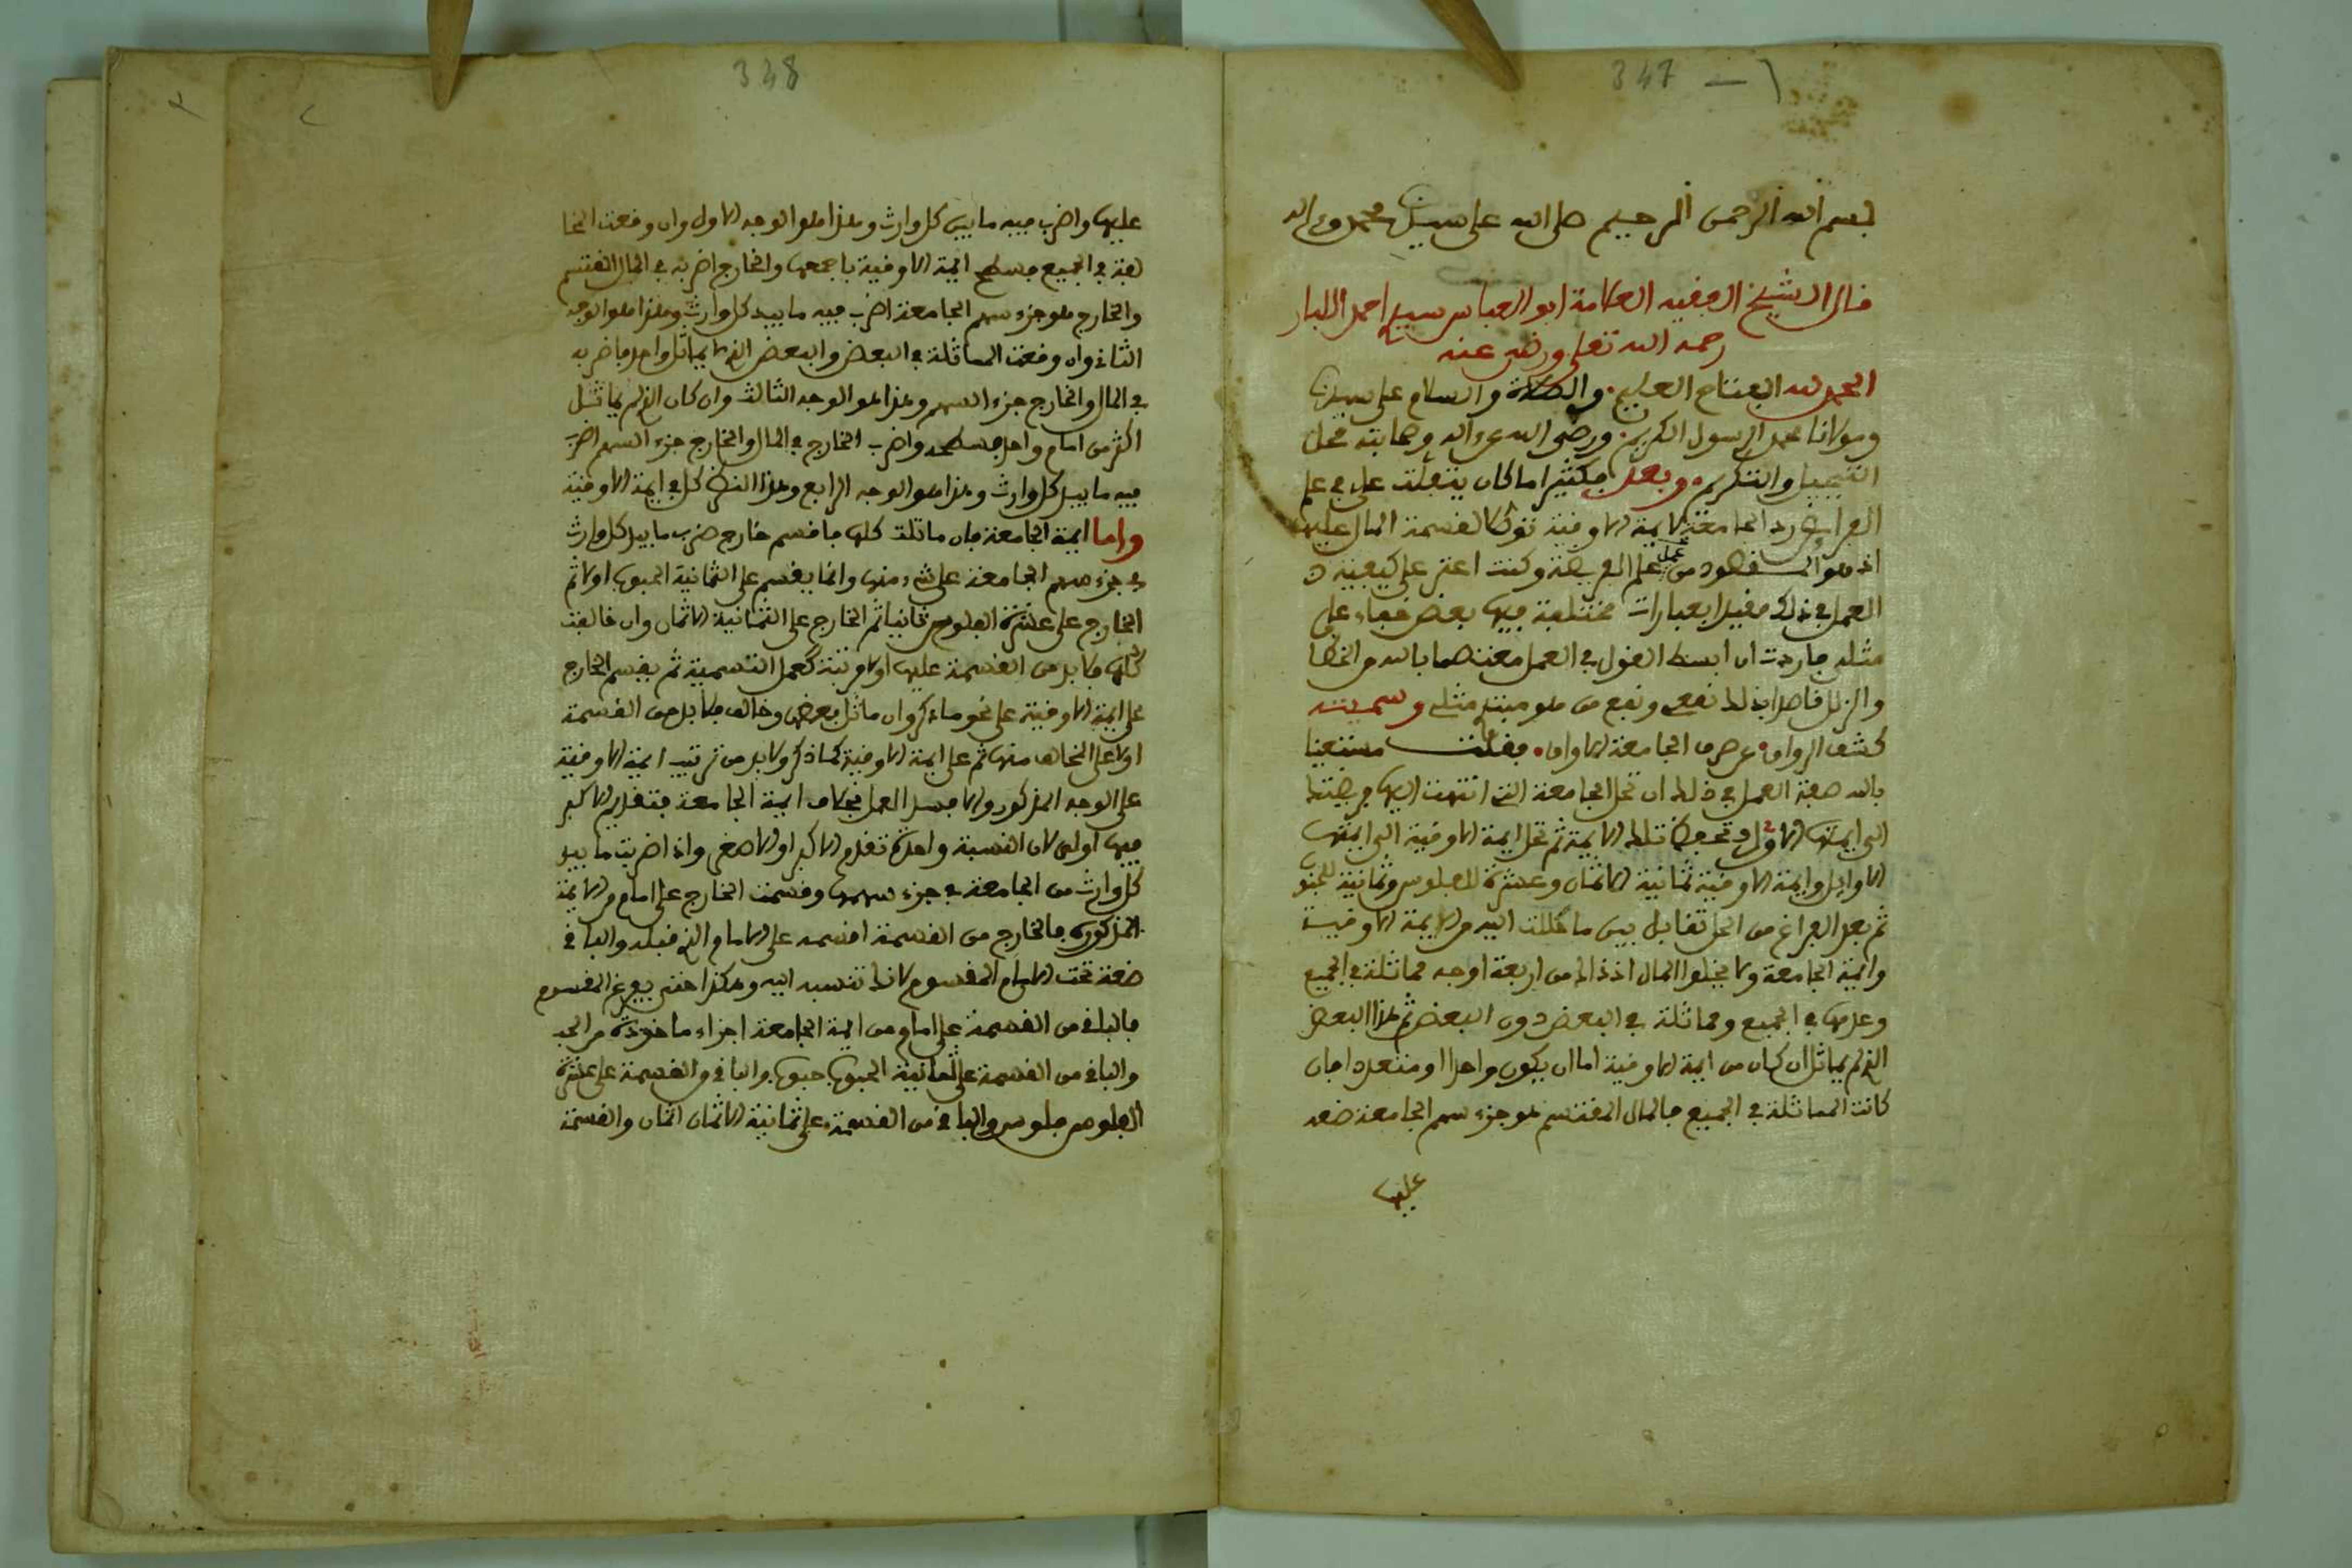 347 — 1
بسم الله الرحمن الرحيم صلى الله على سيدنا محمد وءاله
قال الشيخ الفقيه العلامة ابو العباس سيدي احمد اللبار
رحمه الله تعلى ورضي عنه
الحمد لله الفتاح العليم. والصلاة والسلام على سيدنا
ومولانا محمد الرسول الكريم. ورضي الله عن ءاله وصحابته محل
التبجيل والتكريم. وبعد فكثيرا ما كان يتفلت علي في علم
الفرائض رد الجامعة لايمة الاوقية توطئا لقسمة المال عليها
اذ هو المقصود من عمل علم الفريضة وكنت اعثر على كيفية
العمل في ذلك مقيدا بعبارات مختلفة فيها بعض خفاء على
مثلي فاردت ان ابسط القول في العمل معتصما بالله من الخطا
والزلل قاصدا بذلك نفعي ونفع من هو مبتدئ مثلي وسميته
كشف الرواق عن صرف الجامعة للاواق. فقلت مستعينا
بالله صفة العمل في ذلك ان تحل الجامعة التي انتهت اليها فريضتك
الى ايمتها الاول وتحفظ تلك الايمة ثم تحل ايمة الاوقية الى ايمتها
الاوايل وايمة الاوقية ثمانية الاثمان وعشرة للفلوس وثمانية للحبوب
ثم بعد الفراغ من الحل تقابل بين ما حللت اليه من ايمة الاوقية
وايمة الجامعة ولا يخلوا الحال اذ ذاك من اربعة اوجه مماثلة في الجميع
وعدمها في الجميع ومماثلة في البعض دون البعض ثم هذا البعض
الذي لم يماثل ان كان من ايمة الاوقية اما ان يكون واحدا او متعددا فان
كانت المماثلة في الجميع فالمال المقتسم هو جزء سهم الجامعة ضعه
عليها
348
عليها واضرب فيه ما بيد كل وارث وهذا هو الوجه الاول وان وقعت المخا
لفة في الجميع فسطح ايمة الاوقية باجمعها والخارج اضربه في المال المقتسم
والخارج هو جزء سهم الجامعة اضرب فيه ما بيد كل وارث وهذا هو الوجه
الثاني وان وقعت المماثلة في البعض والبعض الذي لا يماثل واحد فاضربه
في المال والخارج جزء السهم وهذا هو الوجه الثالث وان كان الذي لم يماثل
اكثر من امام واحد فسطحه واضرب الخارج في المال والخارج جزء السهم اضرب
فيه ما بيد كل وارث وهذا هو الوجه الرابع وهذا النظر كله في ايمة الاوقية
واما ايمة الجامعة فان ماثلت كلها فاقسم خارج ضرب ما بيد كل وارث
في جزء سهم الجامعة على شيء منها وانما يقسم على الثمانية الحبوب اولا ثم
الخارج على عشرة الفلوس ثانيا ثم الخارج على الثمانية الاثمان وان خالفت
كلها فلا بد من القسمة عليها اولا مرتبة كعمل التسمية ثم يقسم الخارج
على ايمة الاوقية على نحو ما ذكر وان ماثل بعضها وخالف فلا بد من القسمة
اولا على المخالف منها ثم على ايمة الاوقية كما ذكر ولا بد من ترتيب ايمة الاوقية
على الوجه المذكور والا فسد العمل بخلاف ايمة الجامعة فتقديم الاكبر
فيها اولى لان النسبة واحدة تقدم الاكبر او الاصغر واذا ضربت ما بيد
كل وارث من الجامعة في جزء سهمها وقسمت الخارج على امام من الايمة
المذكورة فالخارج من القسمة اقسمه على الامام الذي قبله والباقي
ضعه تحت الامام المقسوم لانك تنسبه اليه وهكذا حتى يفرغ المقسوم
فالباقي من القسمة على امام من ايمة الجامعة اجزاء ماخوذة من الحبة
والباقي من القسمة على ثمانية الحبوب حبوب والباقي من القسمة على عشرة
الفلوس فلوس والباقي من القسمة على ثمانية الاثمان اثمان والقسمة